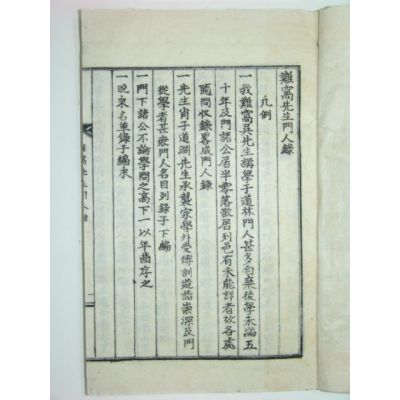 難窩先生門人錄
凡例
一我難窩吳先生講學于道林門人甚多自棄後學未滿五
十年及門諸公居半零落散居列邑有未能詳者故各處
隨問收錄畧成門人錄
一先生肖子道淵先生承襲家學外受傅訓造詣崇深及門
從學者甚衆門人名目列錄于下編
一門下諸公不論學問之高下一以年齒序之
一晚來名單錄于編末
難窩先生門人錄 一